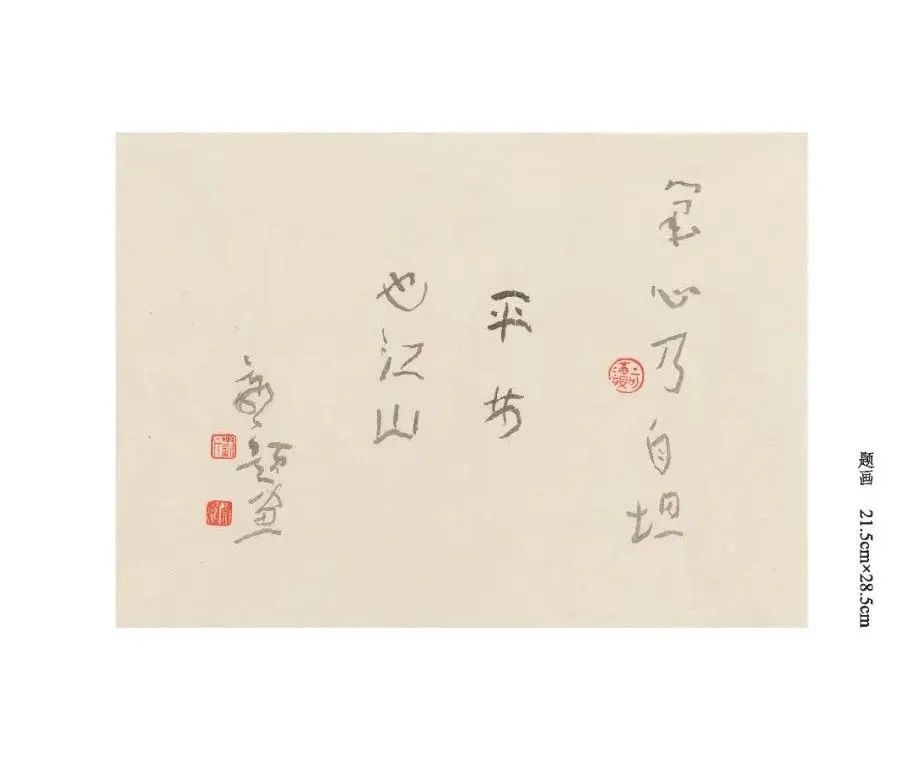 心乃自坦
平安
也江山
题画
题画 21.5cm×28.5cm